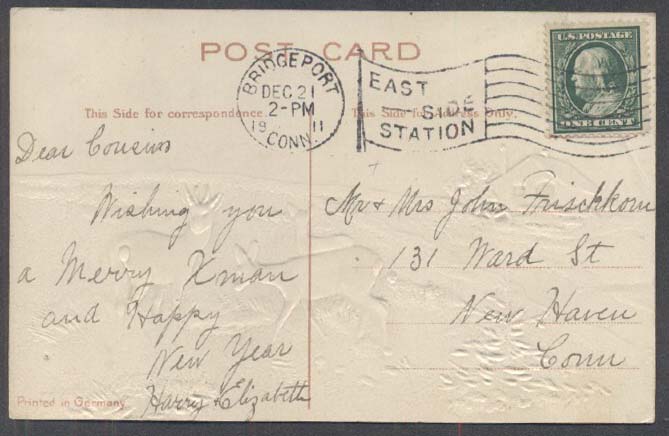 POST CARD
BRIDGEPORT
DEC 21
2-PM
19 11
CONN.
EAST
SIDE
STATION
U.S. POSTAGE
ONE CENT
This Side for correspondence.
This Side for Address Only.
Dear Cousins
Wishing you
a Merry Xmas
and Happy
New Year
Harry & Elizabeth
Mr & Mrs John Frischkorn
131 Ward St
New Haven
Conn
Printed in Germany